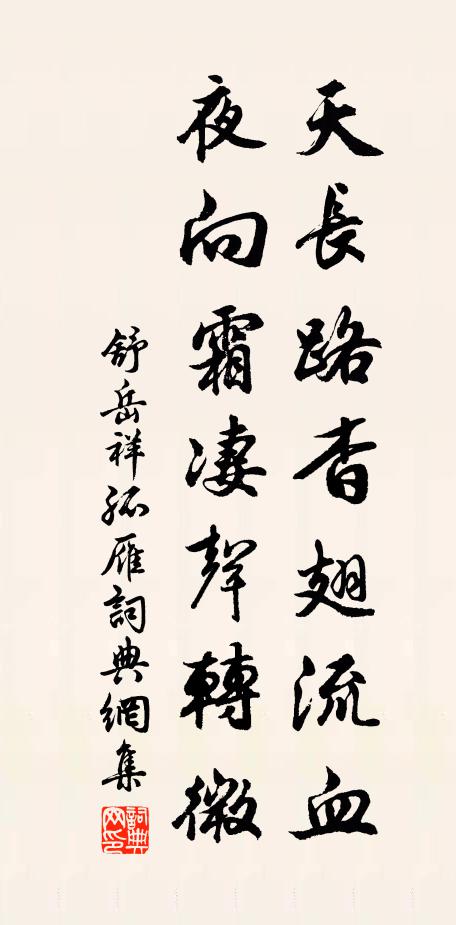 天長路杳翅流血
夜向霜淒聲轉微
舒岳祥孤雁詞典網集
詞典網印